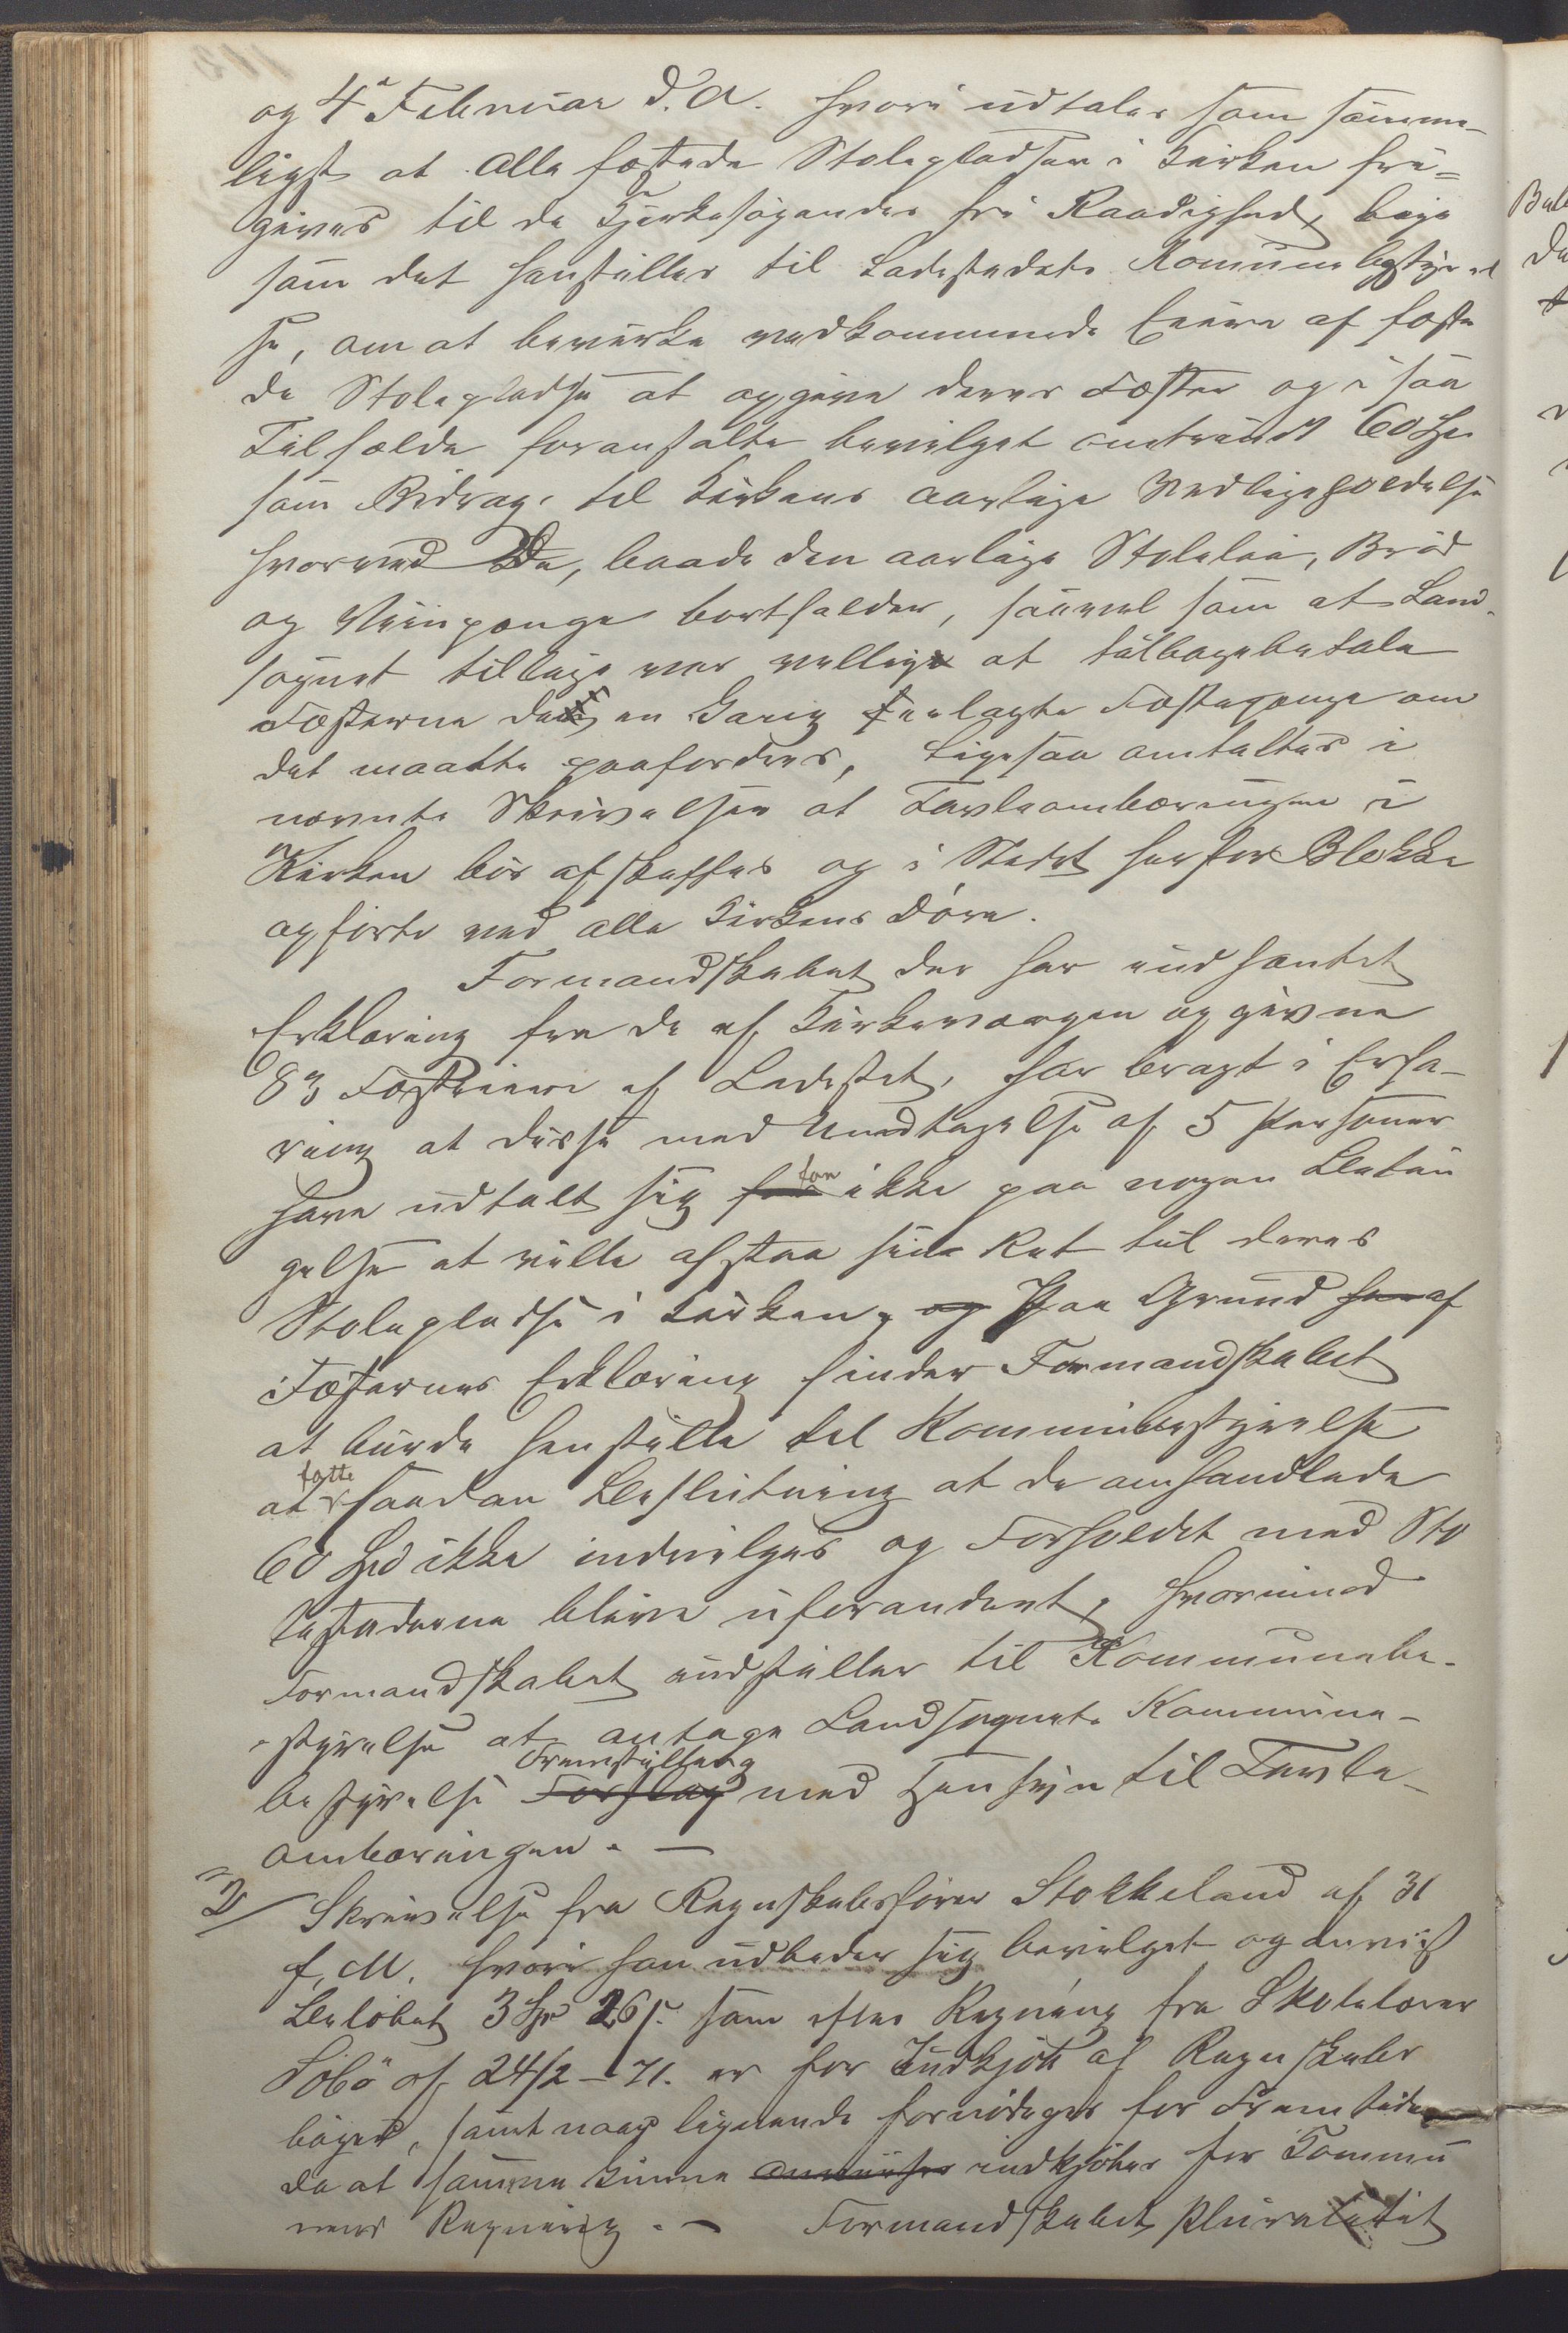 og 4de Februar d. A. hvori udtales som sømme-
ligst at alle fæstede Stolepladser i Kirken fri=
gives til de Kjerkesøgendes frie Raadighed, lige
som det henstilles til Ladestedets Komunebestyrel
se, om at bevirke vedkommende Eiere af fæste
de Stolepladse at opgive deres Fæster og i saa
Tilfælde foranstalte bevilget omtrindt 60 Spd
som Bidrag til Kirkens aarlige Vedligeholdelse
hvorved da, baade den aarlige Stoleleie, Brød
og Viinpenge bortfalder, saavel som at Land-
sognet tillige var villig at tilbagebetale
Fæsterne det en Gang erlagte Fæstepenge om
det maatte paafordres, Ligesaa omtaltes i
nævnte Skrivelser at Tavleombæringen i
Kirken bør afskaffes og i Stedet herfor Blokke
opførte ved alle Kirkens Døre.
Formandskabet der har indhentet
Erklæring fra de af Kirkeværgen opgivne
83 Fæsteeiere af Ladestedet, har bragt i Erfa-
ring at disse med Undtagelse af 5 Personer
have udtalt sig for ikke paa nogen Betin
gelse at ville afstaa sin Ret til deres
Stolepladse i Kirken, og Paa Grund her af
Fæsternes Erklæring finder Formandskabet
at burde henstille til Kommunebestyrelse
at fatte saadan Beslutning at de omhandlede
60 Spd ikke indvilges og Forholdet med Sto
lestaderne blive uforandret, hvorimod
Formandskabet indstiller til Kommunebe-
styrelse at antage Landsognets Kommune-
bestyrelse Forslag Fremstilling med Hensyn til Tavle-
ombæringen. —
2/ Skrivelse fra Regnskabsfører Stokkeland af 31
f. M. hvori han udbeder sig bevilget og anviist
Beløbet 3 Spd 26 s. som efter Regning fra Skolelærer
Söbö af 24/2 - 71. er for Indkjöb af Regnskabs
böger, samt naar lignende fornödiges for Fremtiden
da at samme kunne anviises indkjöbes for Kommu
nens Regning. — Formandskabets Pluralitet